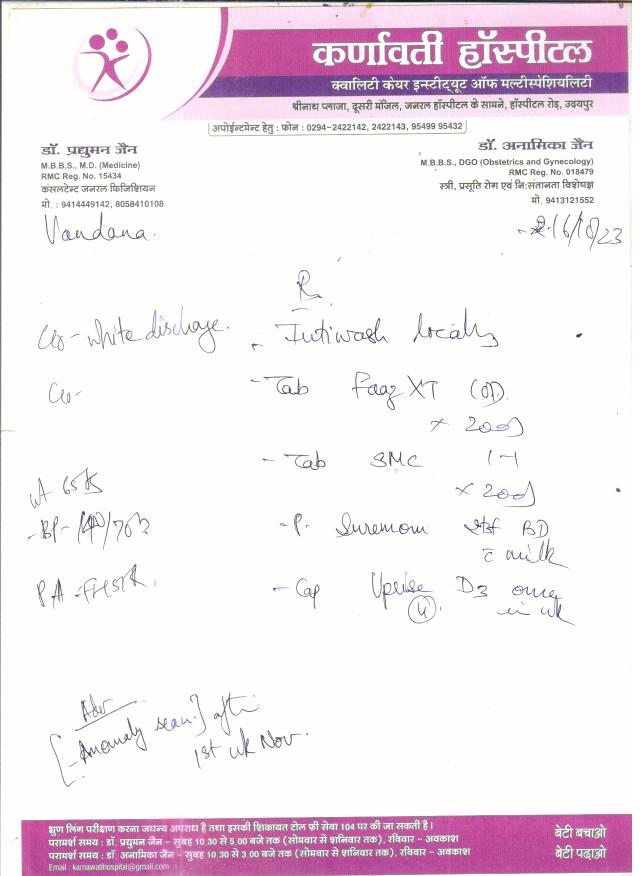 कर्णावती हॉस्पीटल
क्वालिटी केयर इन्स्टीट्यूट ऑफ मल्टीस्पेशियलिटी
श्रीनाथ प्लाजा, दूसरी मंजिल, जनरल हॉस्पीटल के सामने, हॉस्पीटल रोड़, उदयपुर
अपोईन्टमेन्ट हेतु : फोन : 0294-2422142, 2422143, 95499 95432
डॉ. प्रद्युमन जैन
M.B.B.S., M.D. (Medicine)
RMC Reg. No. 15434
कंसलटेन्ट जनरल फिजिशियन
मो. : 9414449142, 8058410108
डॉ. अनामिका जैन
M.B.B.S., DGO (Obstetrics and Gynecology)
RMC Reg. No. 018479
स्त्री, प्रसूति रोग एवं नि:संतानता विशेषज्ञ
मो. 9413121552
Vandana.
Rx
C/o- white discharge.
- Intiwash locally
C/o-
- Tab Faaz XT (OD).
x 20d
- Tab SMC 1-1
x 20d
wt 65
- BP- 140/70
- P. Suremom BD
c milk
PA -
- Cap Uprise D3 once
(4) in wk
Adv
[-Anomaly scan.] after
1st wk Nov.
भ्रुण लिंग परीक्षण करना जघन्य अपराध है तथा इसकी शिकायत टोल फ्री सेवा 104 पर की जा सकती है।
परामर्श समय : डॉ. प्रद्युमन जैन - सुबह 10.30 से 5.00 बजे तक (सोमवार से शनिवार तक), रविवार - अवकाश
परामर्श समय : डॉ. अनामिका जैन - सुबह 10.30 से 3.00 बजे तक (सोमवार से शनिवार तक), रविवार - अवकाश
Email : karnawatihospital@gmail.com
बेटी बचाओ
बेटी पढ़ाओ